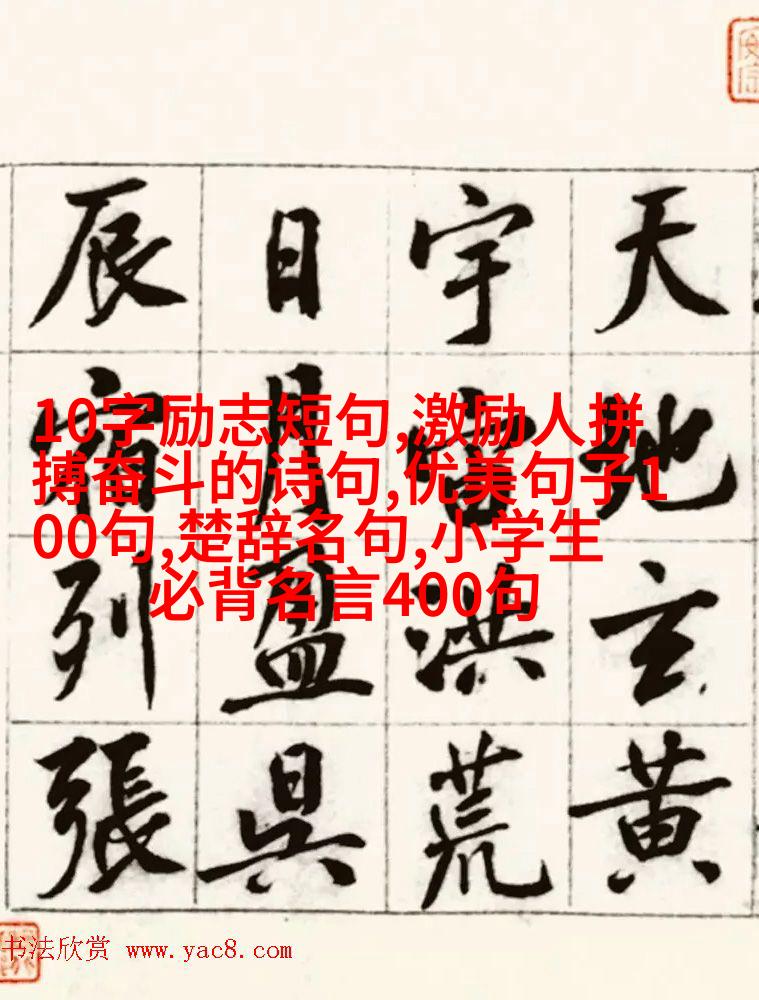 天地玄黄
宇宙洪荒
日月盈昃
辰宿列張
10字励志短句,激励人拼
搏奋斗的诗句,优美句子1
00句,楚辞名句,小学生
必背名言400句
书法欣赏 www.yac8.com